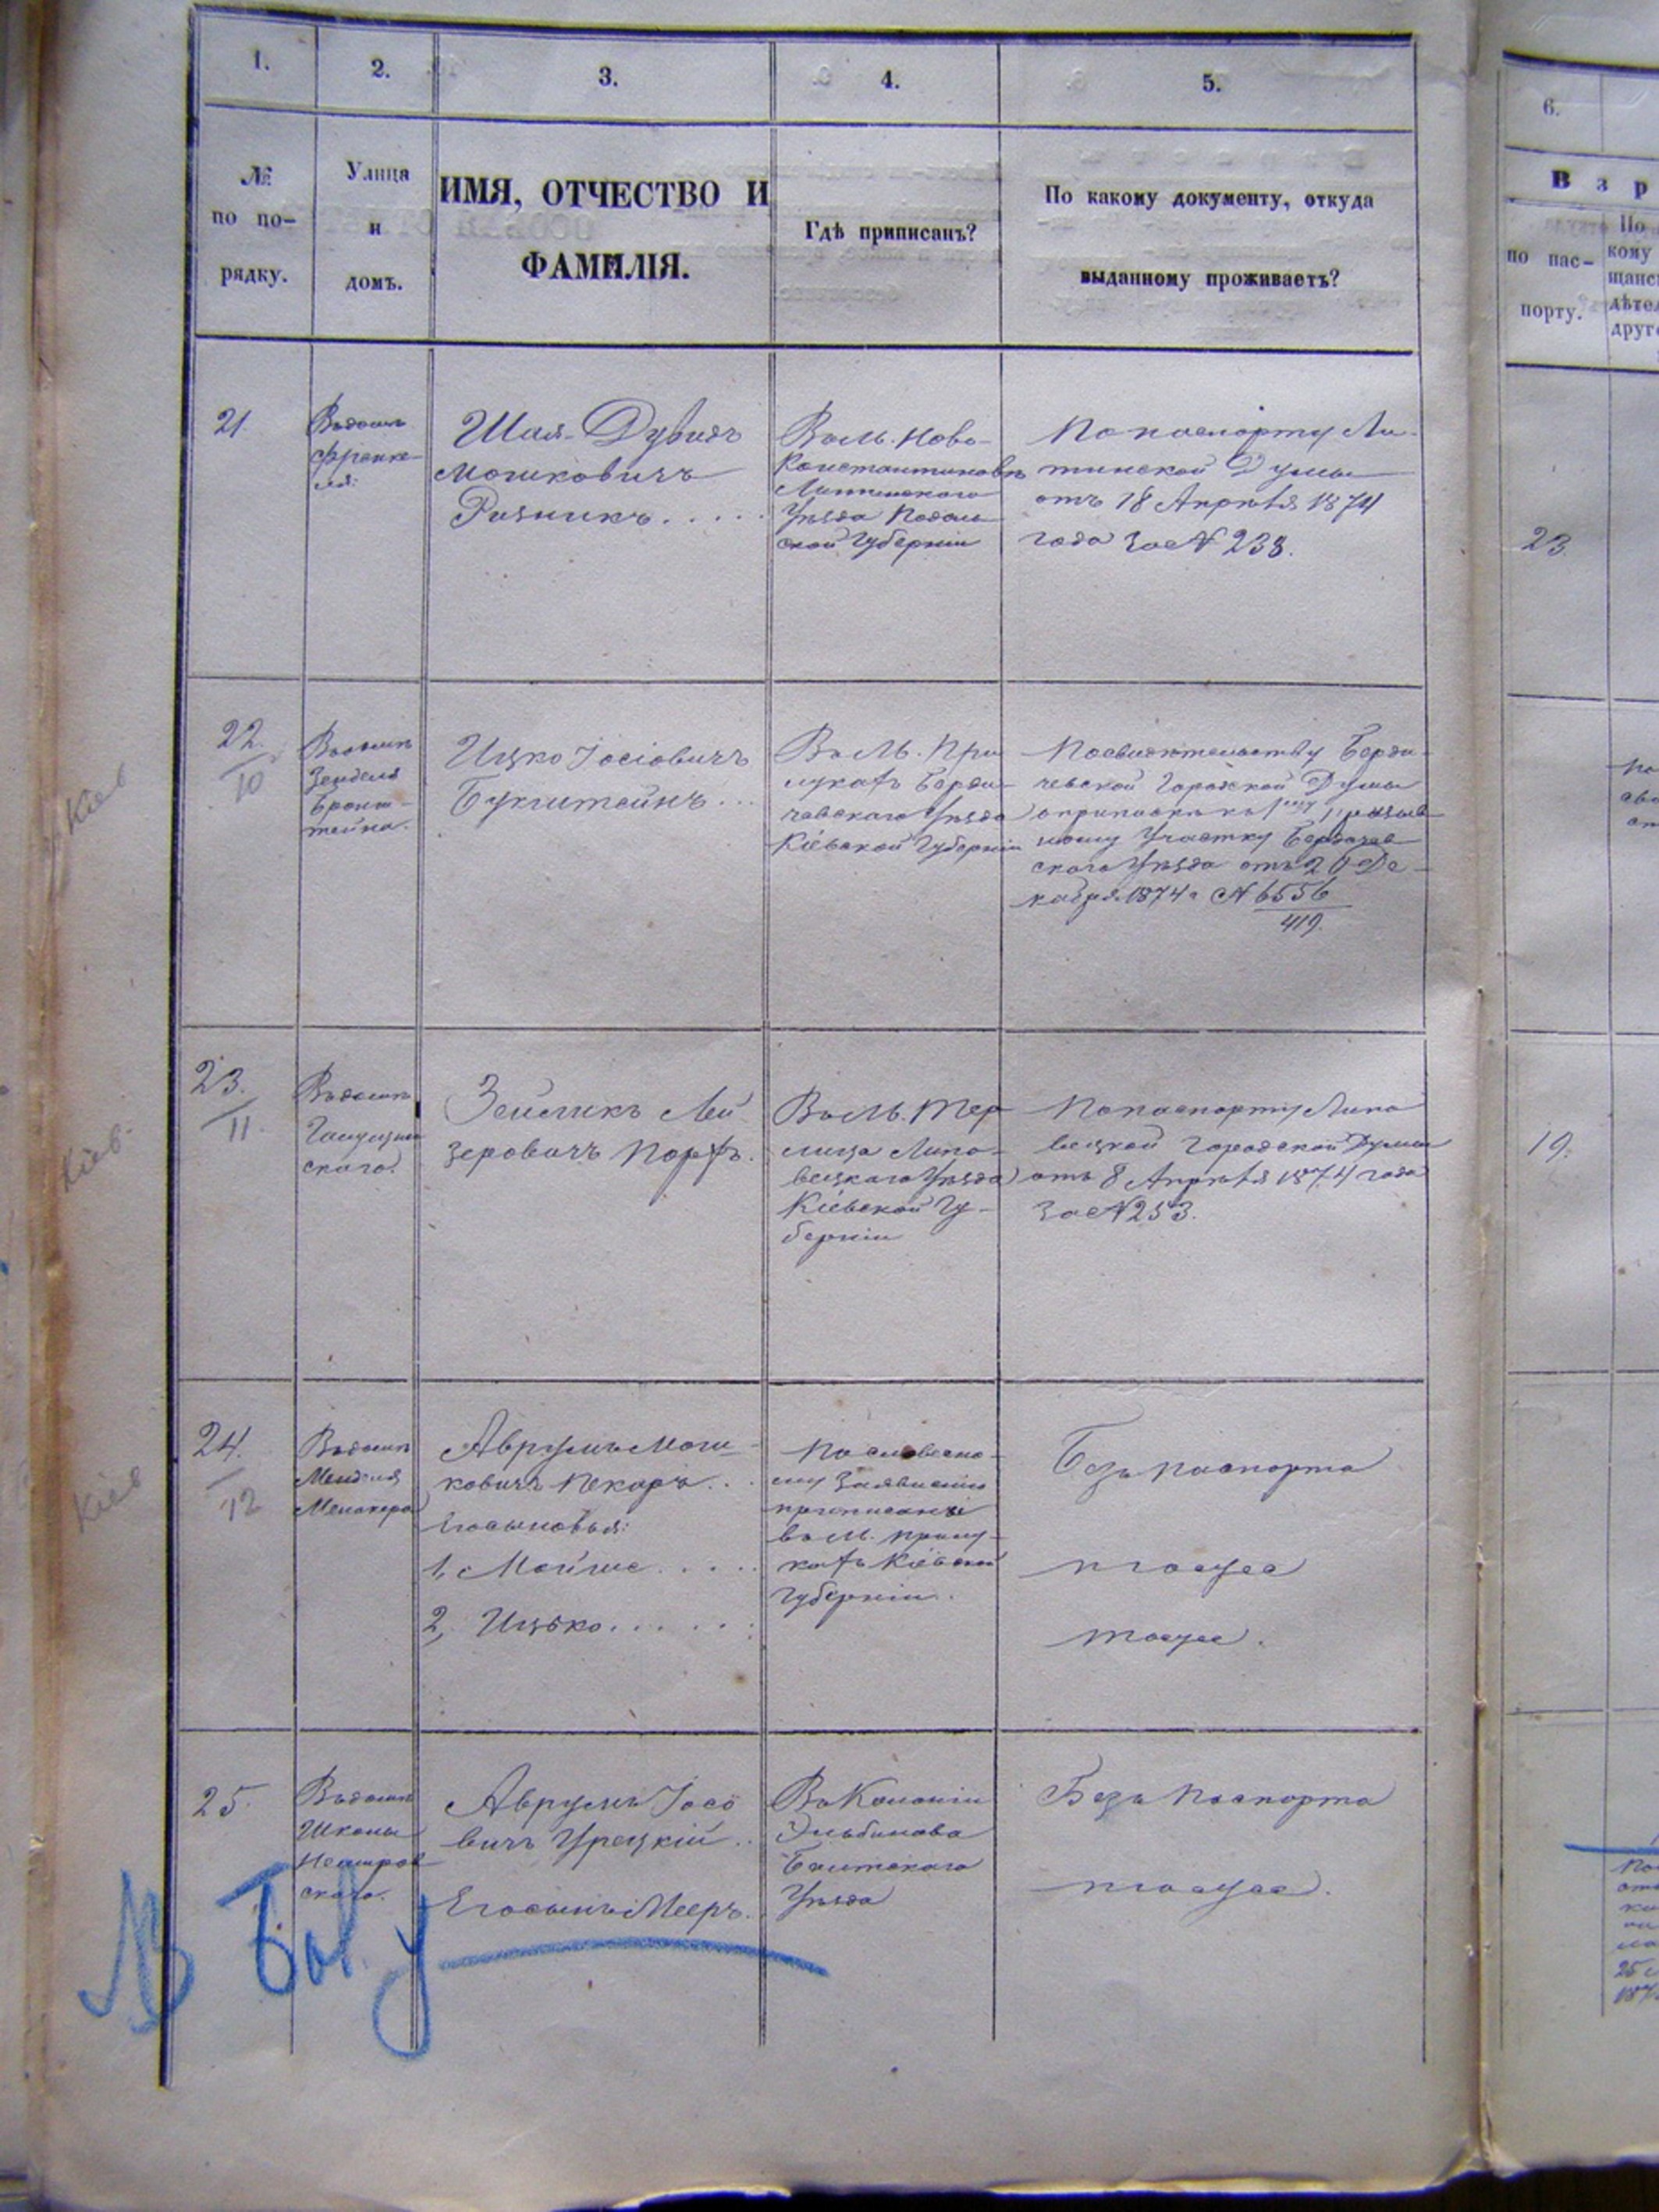 1.
2.
3.
4.
5.
6.
№
по по-
рядку.
Улица
и
домъ.
ИМЯ, ОТЧЕСТВО И
ФАМИЛІЯ.
Гдѣ приписанъ?
По какому документу, откуда
выданному проживаетъ?
В з р
по пас-
порту.
По
кому
21
Въ домѣ
Френке-
ля.
Шая-Дувидъ
Мошковичъ
Ризникъ.....
Въ М. Ново-
Константиновѣ
Литинскаго
Уѣзда Подоль-
ской Губерніи
По паспорту Ли-
тинской Думы
отъ 18 Апрѣля 1874
года за № 238.
23.
22.
10
Въ домѣ
Зенделя
Бронш-
тейна.
Ицко Іосіовичъ
Букштейнъ...
Въ М. При
лукахъ Берди-
чевскаго Уѣзда
Кіевской Губерніи
По свидѣтельству Берди-
чевской Городской Думы
о припискѣ къ 1му призыв
ному Участку Бердичев
скаго Уѣзда отъ 20 Де-
кабря 1874 г № 6556
419.
Кіев
23.
11.
Въ домѣ
скаго.
Зейликъ Лей
зеровичъ Порхъ.
Въ М. Тер
лица Липо-
вецкаго Уѣзда
Кіевской Гу-
берніи
По паспорту Липо
вецкой Городской Думы
отъ 8 Апрѣля 1874 года
за № 253.
19.
Кіев.
24.
12
Въ домѣ
Менделя
Менакера
Аврумъ Мош-
ковичъ Пекаръ...
Его сыновья:
1, Мойше.....
2, Ицько......
По словесно-
му заявленію
приписанъ
въ М. Прилу-
кахъ Кіевской
Губерніи.
Безъ паспорта
тоже
тоже.
Кіев
25.
Въ домѣ
Школы
Немиров
скаго.
Аврумъ Іосе
вичъ Урецкій..
Его сынъ Мееръ.
Въ Колоніи
Балтскаго
Уѣзда
Безъ Паспорта
тоже.